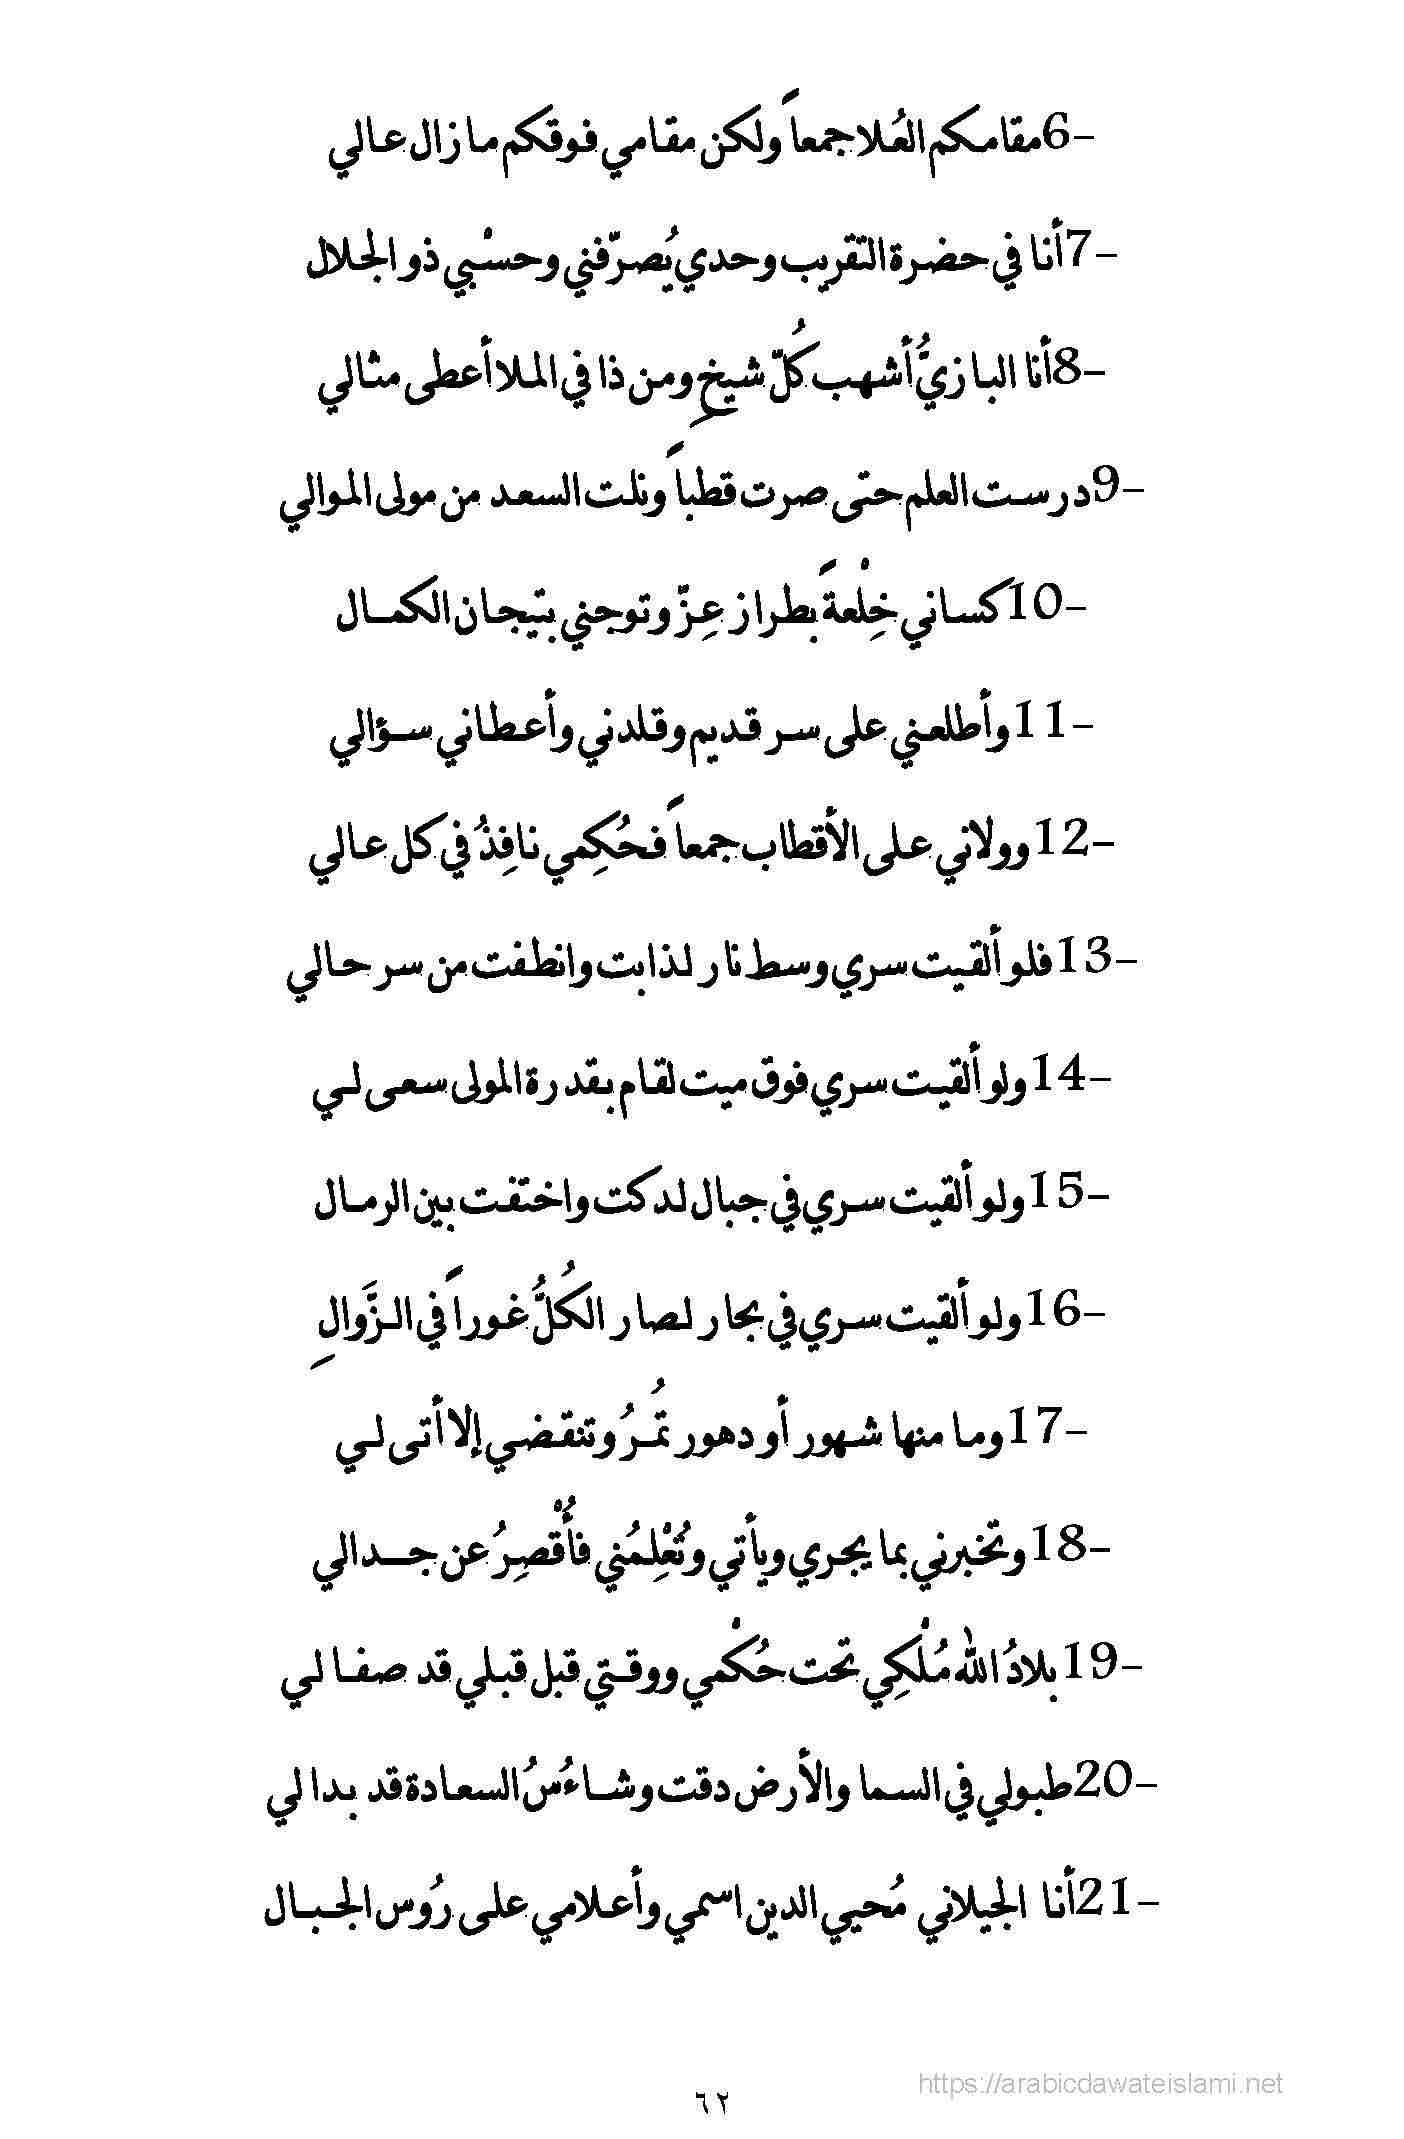 6- مقامكم العُلا جمعاً ولكن مقامي فوقكم ما زال عالي
7- أنا في حضرة التقريب وحدي يُصرّفني وحسْبي ذو الجلال
8- أنا البازيُّ أشهب كُلّ شيخٍ ومن ذا في الملا أعطى مثالي
9- درست العلم حتى صرت قطباً ونلت السعد من مولى الموالي
10- كساني خِلْعةً بطراز عِزّ وتوجني بتيجان الكمال
11- وأطلعني على سر قديم وقلدني وأعطاني سؤالي
12- وولاني على الأقطاب جمعاً فحُكِمي نافِذُ في كل عالي
13- فلو ألقيت سري وسط نار لذابت وانطفت من سر حالي
14- ولو ألقيت سري فوق ميت لقام بقدرة المولى سعى لي
15- ولو ألقيت سري في جبال لدكت واختفت بين الرمال
16- ولو ألقيت سري في بحار لصار الكُلُّ غوراً في الزَّوالِ
17- وما منها شهور أو دهور تمُرُ وتنقضي إلا أتى لي
18- وتخبرني بما يجري ويأتي وتُعْلِمُني فأُقْصِرُ عن جدالي
19- بلادُ الله مُلْكِي تحت حُكْمي ووقتي قبل قبلي قد صفا لي
20- طبولي في السما والأرض دقت وشاءُسُ السعادة قد بدا لي
21- أنا الجيلاني مُحيي الدين اسمي وأعلامي على رُوس الجبال
https://arabicdawateislami.net
٦٢